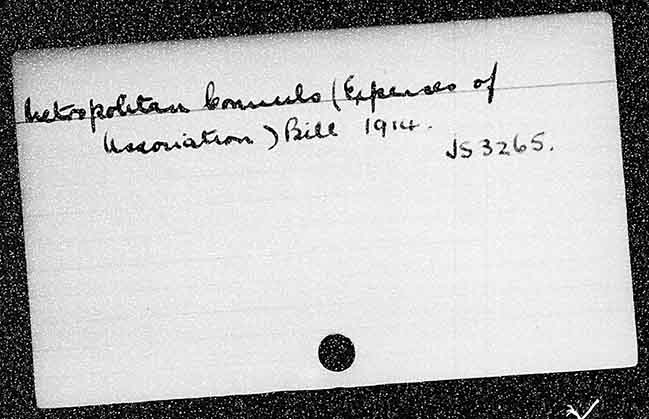 Metropolitan Councils (Expenses of
Association) Bill 1914.
JS 3265.